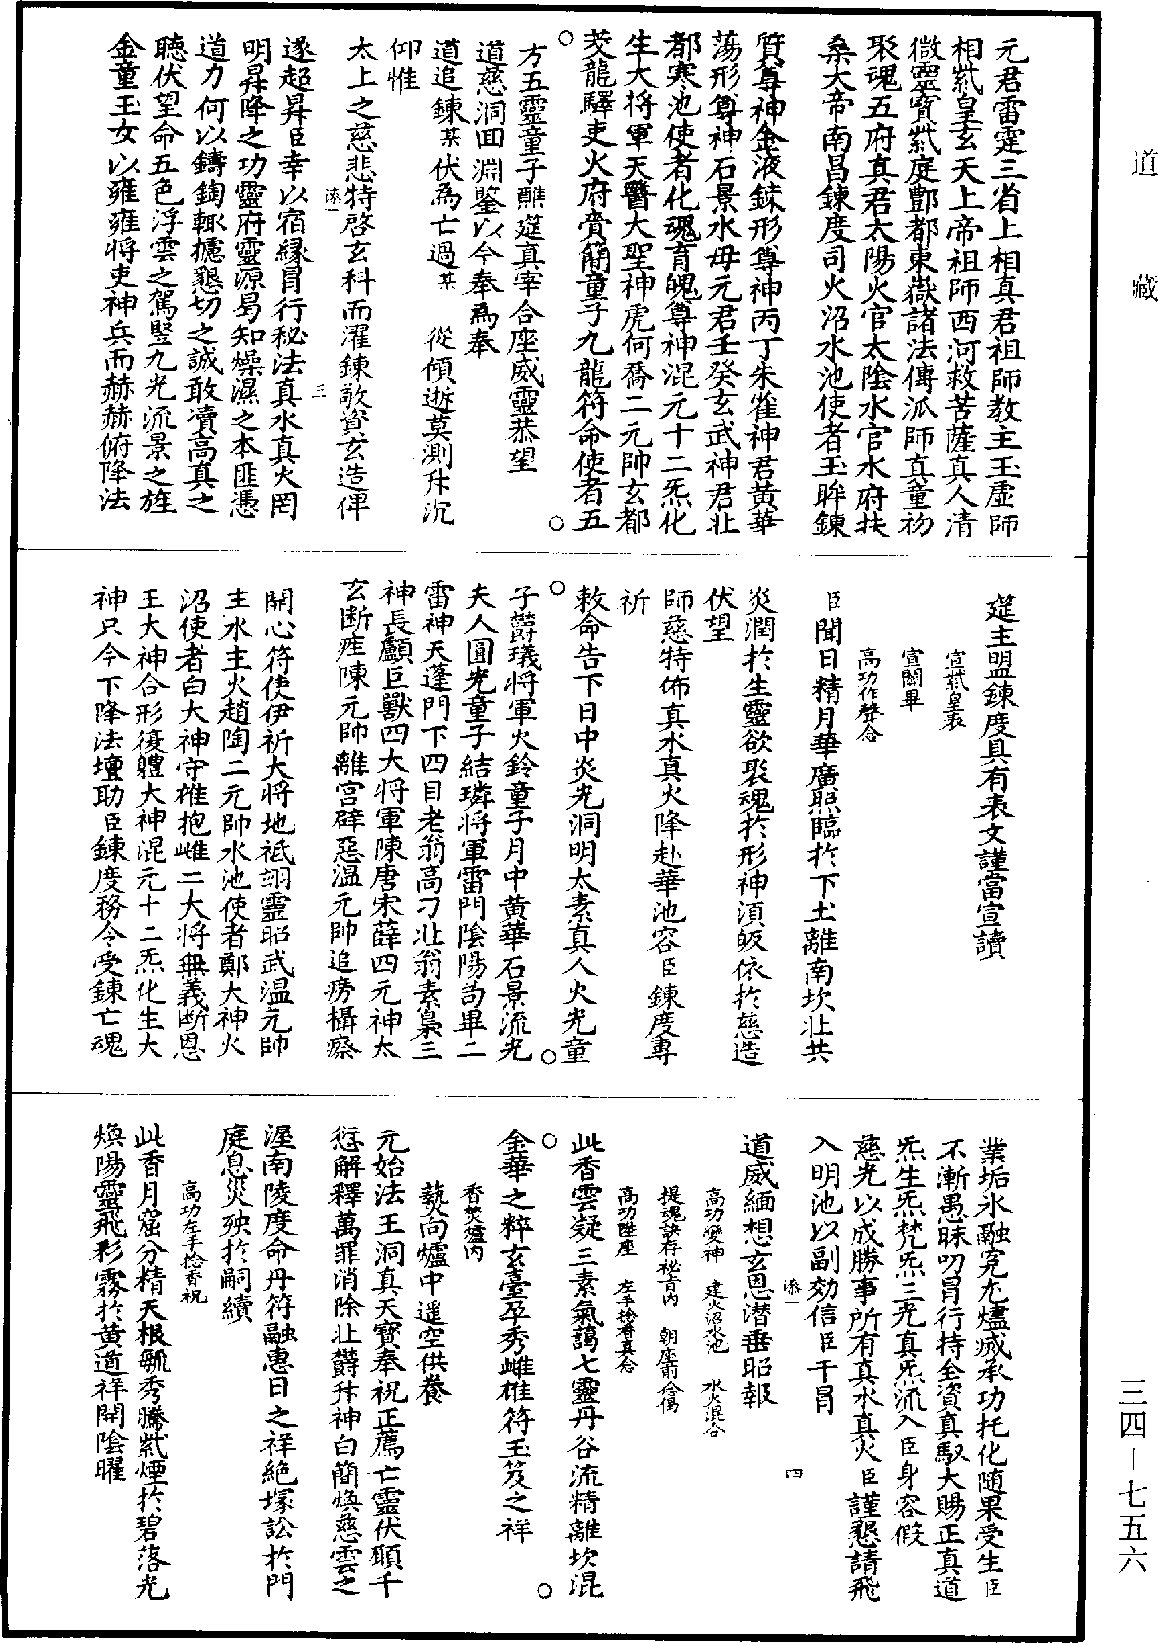 道藏
三四—七五六
元君雷霆三省上相真君祖師教主玉虛師
相紫皇玄天上帝祖師西河救苦薩真人清
微靈寶紫庭酆都東嶽諸法傳派師真童初
聚魂五府真君太陽火官太陰水官水府扶
桑大帝南昌鍊度司火沼水池使者玉眸鍊
質尊神金液鍊形尊神丙丁朱雀神君黃華
蕩形尊神石景水母元君壬癸玄武神君北
都寒池使者化魂育魄尊神混元十二炁化
生大將軍天醫大聖神虎何喬二元帥玄都
茭龍驛吏火府賫簡童子九龍符命使者五
方五靈童子醮筵真宰合座威靈恭望
道慈洞回淵鑒以今奉為奉
道追鍊某伏為亡過某 從傾逝莫測升沉
仰惟
太上之慈悲特啓玄科而濯鍊敬資玄造俾
遂超昇臣幸以宿緣冒行秘法真水真火罔
明昇降之功靈府靈源曷知燥濕之本匪憑
道力何以鑄鎔輒攄懇切之誠敢瀆高真之
聽伏望命五色浮雲之駕豎九光流景之旌
金童玉女以雍雍將吏神兵而赫赫俯降法
添一
三
筵主盟鍊度具有表文謹當宣讀
宣紫皇表
宣關畢
高功作聲念
臣聞日精月華廣照臨於下土離南坎北共
炎潤於生靈欲聚魂於形神須皈依於慈造
伏望
師慈特佈真水真火降赴華池容臣鍊度專
祈
敕命告下日中炎光洞明太素真人火光童
子欝㼁將軍火鈴童子月中黃華石景流光
夫人圓光童子結璘將軍雷門陰陽苟畢二
雷神天蓬門下四目老翁高刁北翁素梟三
神長顱巨獸四大將軍陳唐宋薛四元神太
玄斷瘧陳元帥離宮辟惡溫元帥追癆攝瘵
開心符使伊祈大將地祇翊靈昭武溫元帥
主水主火趙陶二元帥水池使者鄭大神火
沼使者白大神守雄抱雌二大將無義斷恩
王大神合形復體大神混元十二炁化生大
神只今下降法壇助臣鍊度務令受鍊亡魂
業垢氷融冤尤燼滅承功托化隨果受生臣
不漸愚昧叨冒行持全資真馭大賜正真道
炁生炁梵炁三光真炁流入臣身容假
慈光以成勝事所有真水真火臣謹懇請飛
入明池以副効信臣干冒
道威緬想玄恩潛垂昭報
添一
四
高功變神 建火沼水池 水火混合
提魂訣存祕旨內 朝座肅念偈
高功陞座 左手捻香真念
此香雲凝三素氣藹七靈丹谷流精離坎混
金華之粹玄臺孕秀雌雄符玉笈之祥
香焚爐內
爇向爐中遥空供養
元始法王洞真天寶奉祝正薦亡靈伏願千
愆解釋萬罪消除北欝升神白簡煥慈雲之
渥南陵度命丹符融惠日之祥絕塚訟於門
庭息災殃於嗣續
高功左手捻香祝
此香月窟分精天根毓秀騰紫煙於碧落光
煥陽靈飛彩霧於黃道祥開陰曜